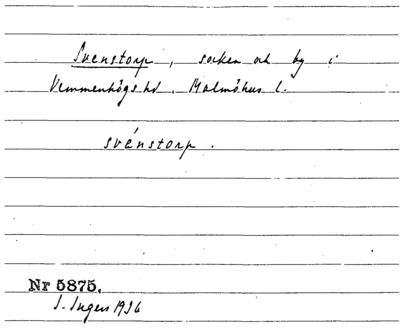 Svenstorp, socken och by i
Vemmenhögs hd, Malmöhus l.
svénstorp.
Nr 5875.
I. Ingers 1926